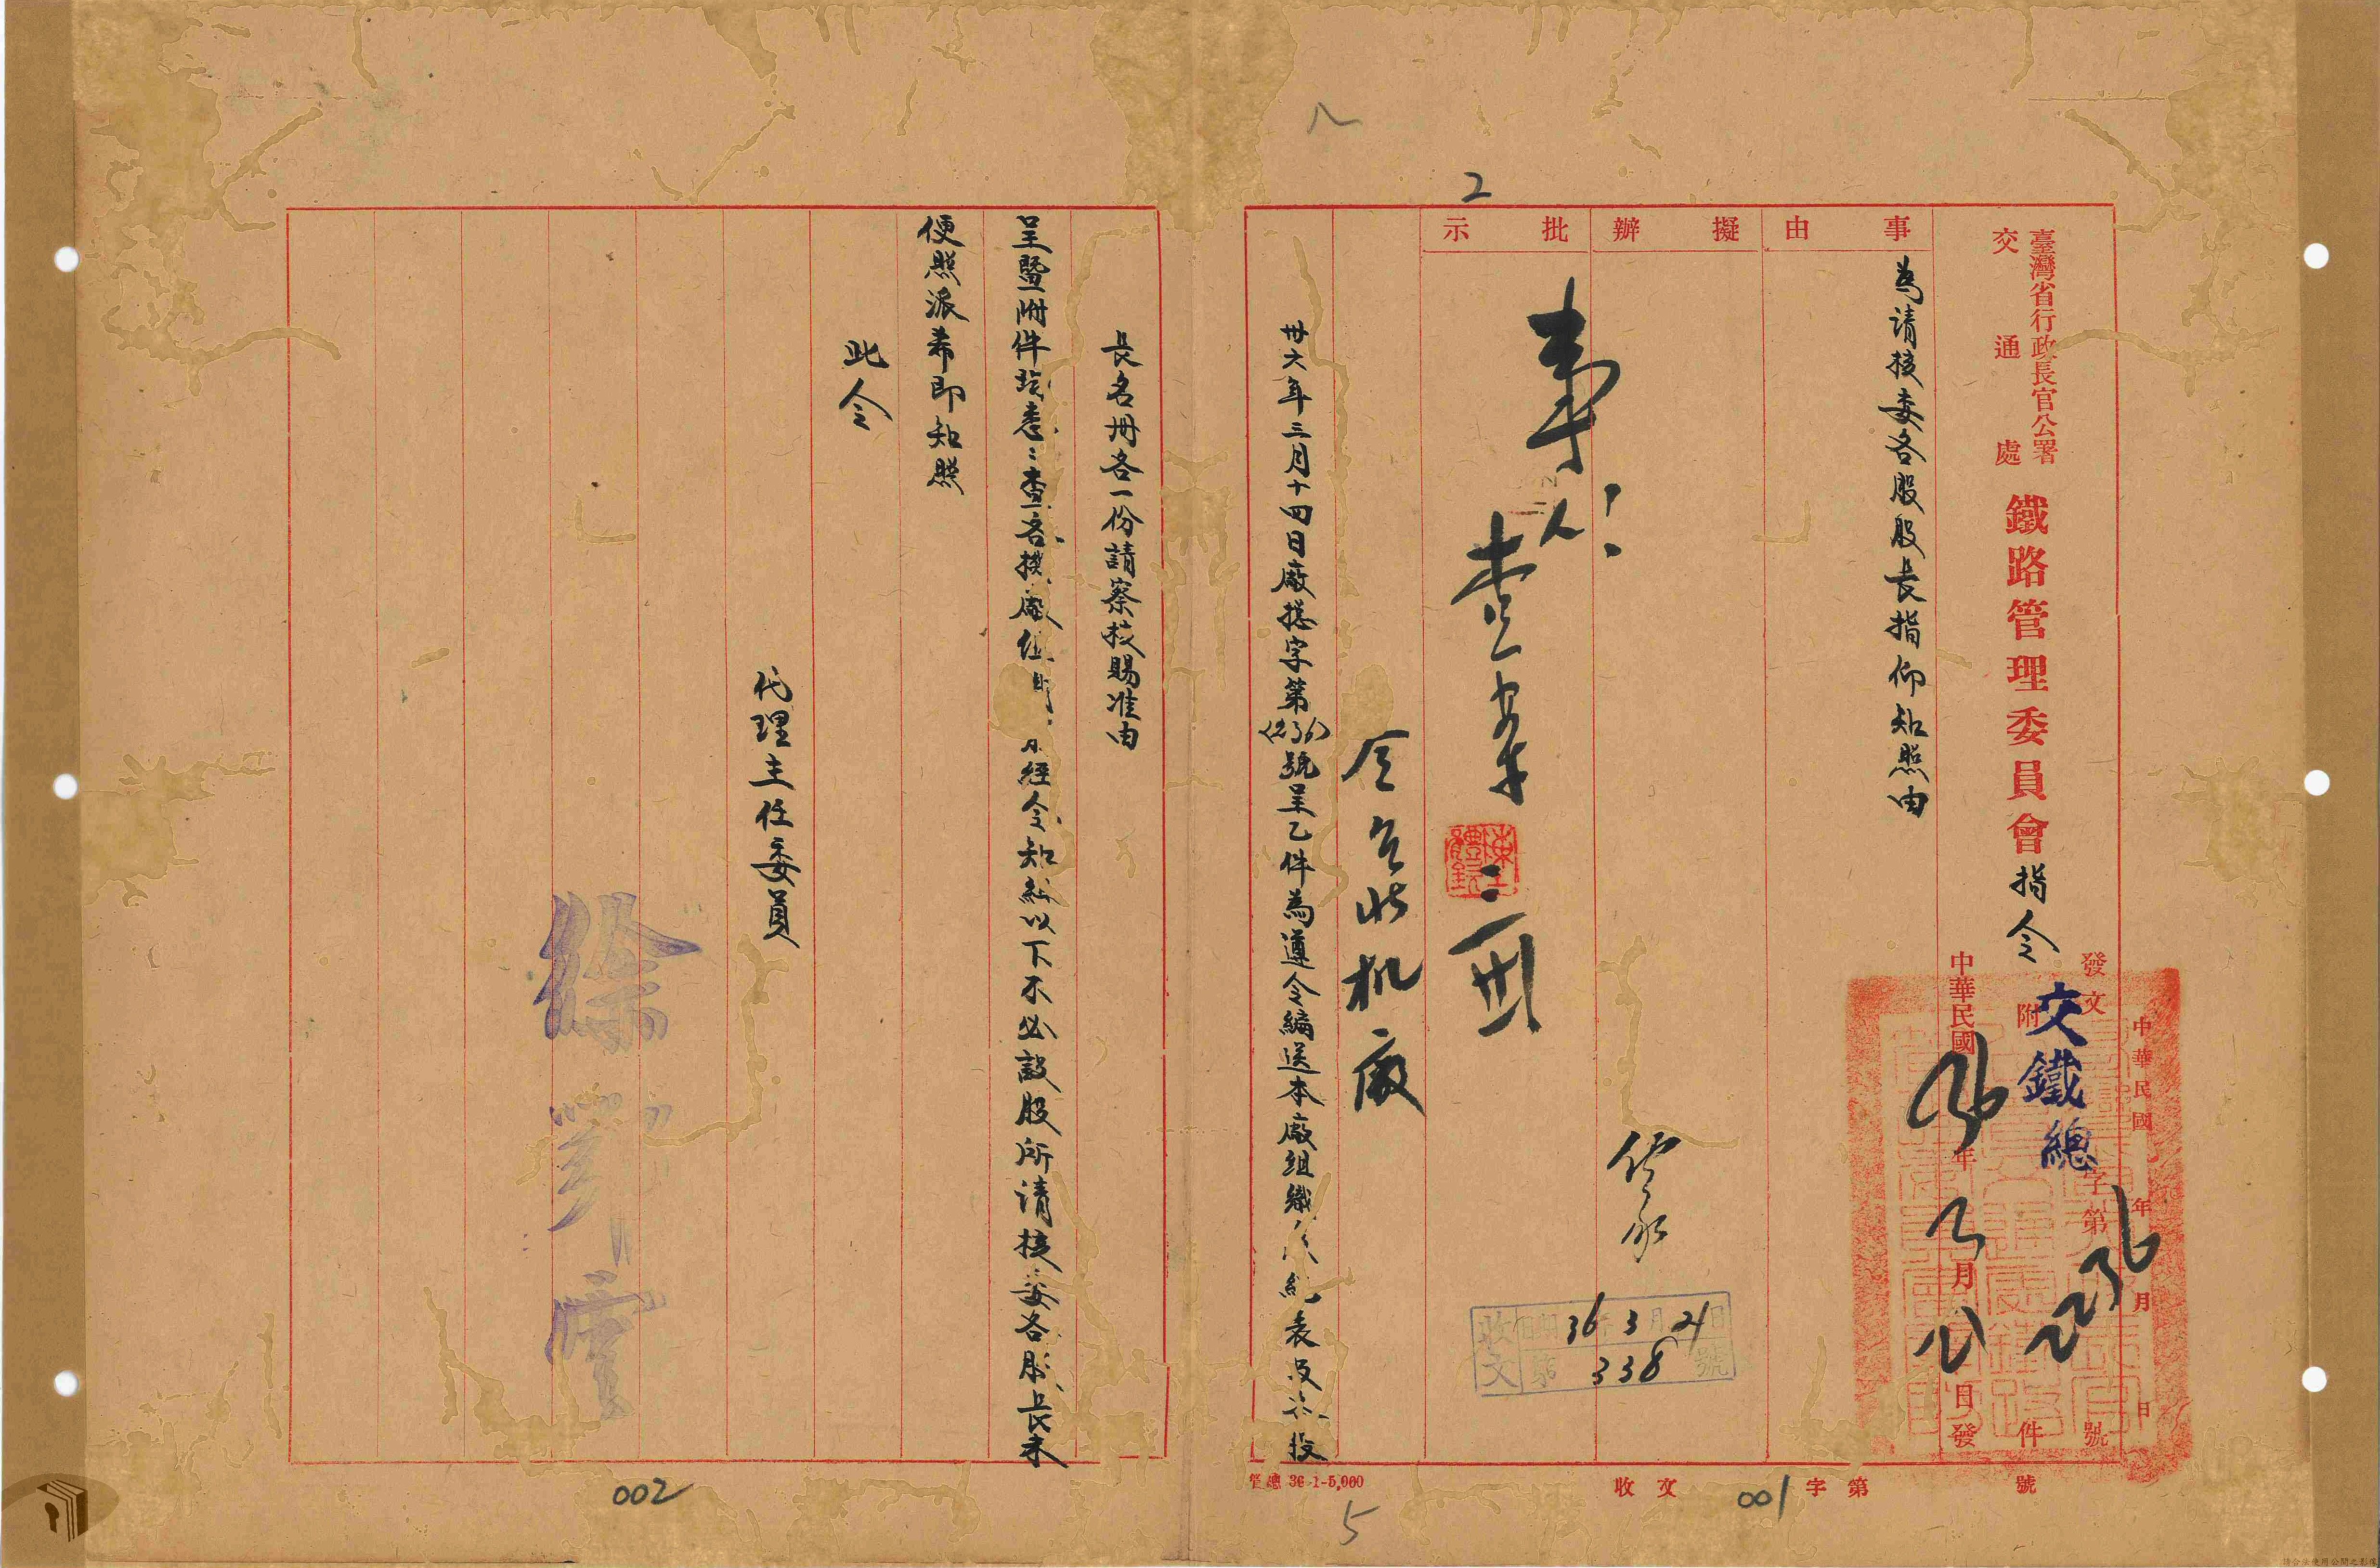 臺灣省行政長官公署
交通處
鐵路管理委員會指令
發文
交鐵總字第
號
附件
中華民國 年 月 日
中華民國36年 月 日發
事由
為請核委各股股長指仰知照由
擬辦
批示
2
令台北机廠
卅六年三月十四日廠總字第(236)號呈乙件為遵令編送本廠組織 表及 股
長名冊各一份請察核賜准由
呈暨附件均悉:查各機廠 經令知 以下不必設股所請核委各股長未
便照派希即知照
此令
代理主任委員
徐鄂雲
收文 36 3 21日
第 338 號
收文 字第 號
管總 36-1-5,000
001
002
5